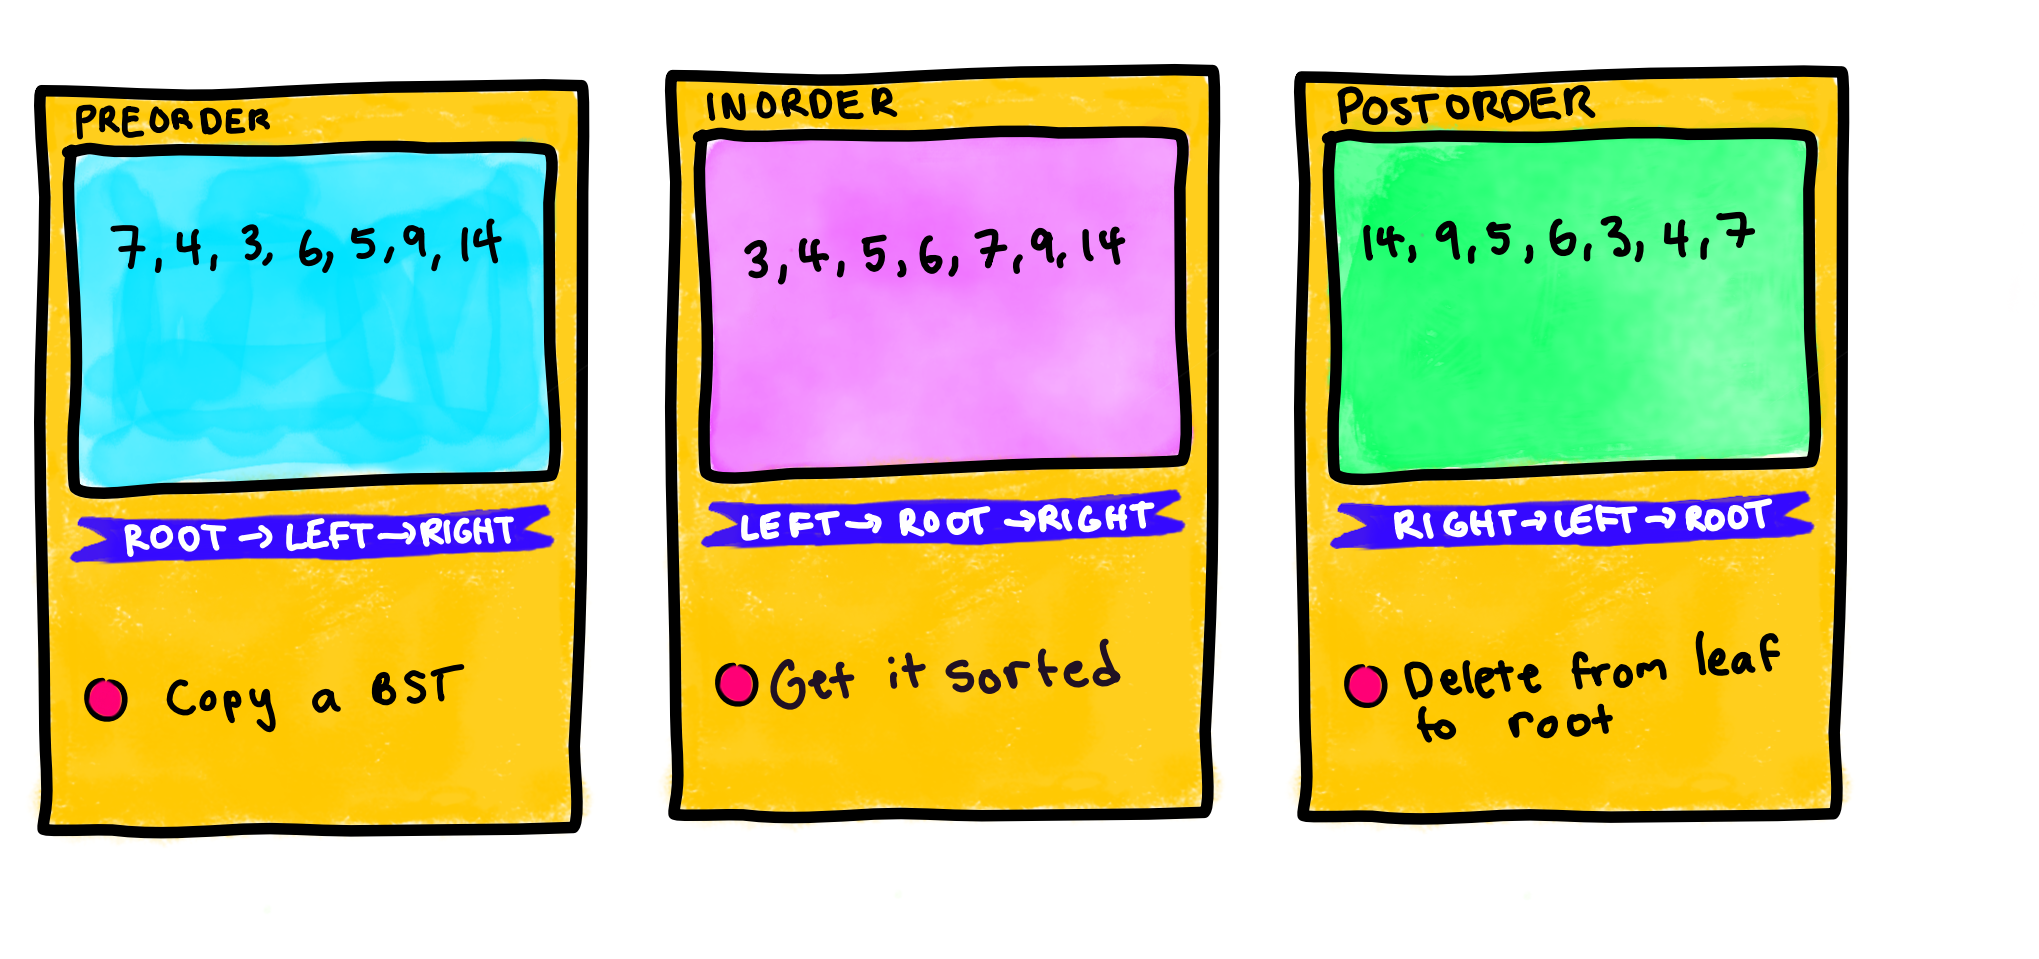 PREORDER
7, 4, 3, 6, 5, 9, 14
ROOT → LEFT → RIGHT
Copy a BST
INORDER
3, 4, 5, 6, 7, 9, 14
LEFT → ROOT → RIGHT
Get it sorted
POSTORDER
14, 9, 5, 6, 3, 4, 7
RIGHT → LEFT → ROOT
Delete from leaf
to root